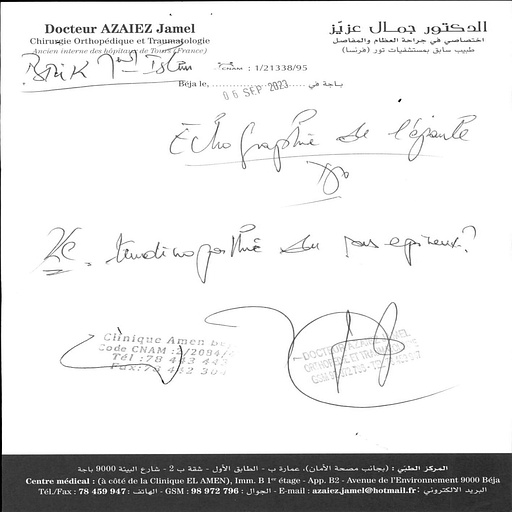 Docteur AZAIEZ Jamel
Chirurgie Orthopédique et Traumatologie
Ancien interne des hôpitaux de Tours (France)
الدكتور جمـال عزيّز
اختصاصي في جراحة العظام والمفاصل
طبيب سابق بمستشفيات تور (فرنسا)
CNAM : 1/21338/95
Béja le, 06 SEP 2023 باجة في
Echographie de l'épaule
RC. tendinopathie du sous epineux?
Clinique Amen
Code CNAM :2/2084/
Tél :78 443 443
Fax:78 442 384
المركز الطبّي : (بجانب مصحة الأمان)، عمارة ب - الطابق الأول - شقة ب 2 - شارع البيئة 9000 باجة
Centre médical : (à côté de la Clinique EL AMEN), Imm. B 1er étage - App. B2 - Avenue de l'Environnement 9000 Béja
Tél./Fax : 78 459 947 : الهاتف - GSM : 98 972 796 : الجوال - E-mail : azaiez.jamel@hotmail.fr : البريد الالكتروني